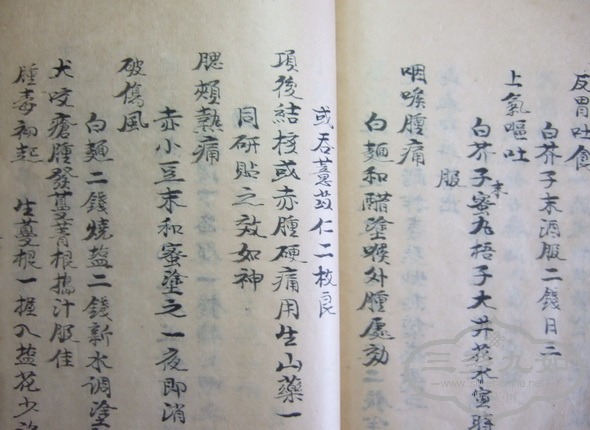 反胃吐食
白芥子末酒服二錢日二
上氣嘔吐
白芥子末蜜丸梧子大井花水
服
咽喉腫痛
白麵和醋塗喉外腫處効
或吞薏苡仁二枚良
項後結核或赤腫硬痛用生山藥一
同研貼之效如神
腮頰熱痛
赤小豆末和蜜塗之一夜即消
破傷風
白麵二錢燒鹽二錢新水調塗
犬咬瘡腫發蔓菁根搗汁服佳
腫毒初起 生蔓根一握入鹽花少